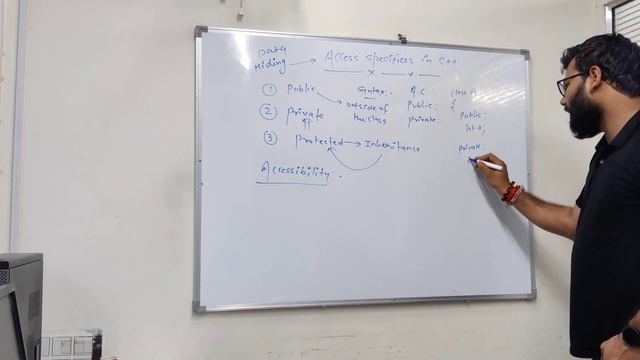 Data
Hiding → Access Specifiers in C++
① Public
② Private
③ Protected → Inheritance
outside of
the class
Syntax:-
A.C:
Public:
Private:
class A
{
Public:
int a;
Private:
Accessibility:-